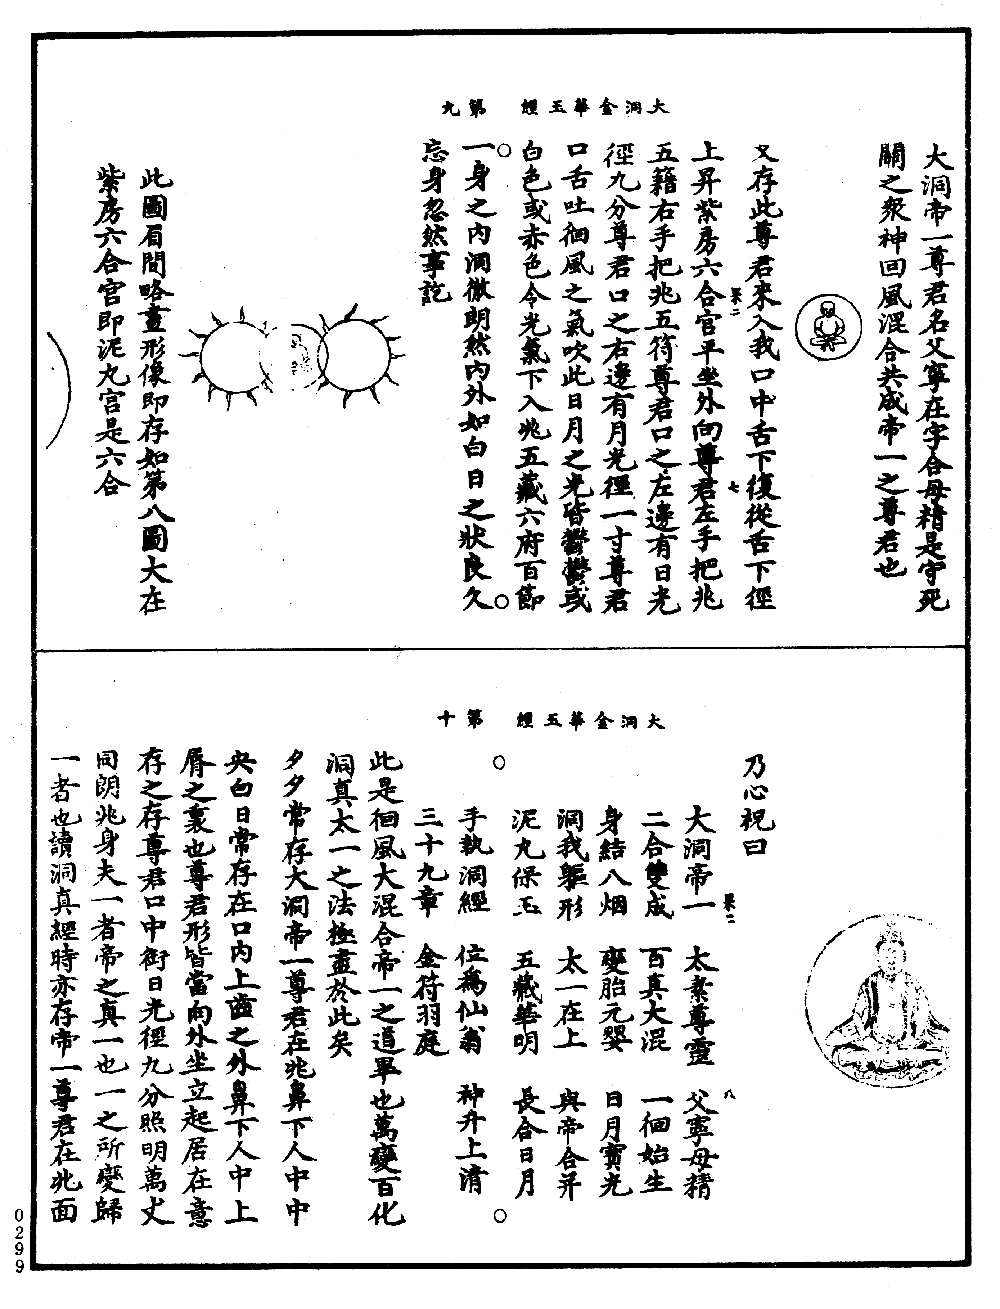 大洞金華玉經　第九
大洞帝一尊君名父寧在字合母精是守死
關之眾神回風混合共成帝一之尊君也
又存此尊君來入我口中舌下復從舌下徑
上昇紫房六合官平坐外向尊君左手把兆
五籍右手把兆五符尊君口之左邊有日光
徑九分尊君口之右邊有月光徑一寸尊君
口舌吐徊風之氣吹此日月之光皆鬱鬱或
白色或赤色令光氣下入兆五藏六府百節
一身之內洞徹朗然內外如白日之狀良久
忘身忽然事訖
此圖眉間略畫形像即存如第八圖大在
紫房六合宮即泥丸宮是六合
七
大洞金華玉經　第十
乃心祝曰
大洞帝一　太素尊靈　父寧母精
二合雙成　百真大混　一徊始生
身結八烟　變胎元嬰　日月寶光
洞我軀形　太一在上　與帝合并
泥丸保玉　五藏華明　長合日月
手執洞經　位為仙翁　神升上清
三十九章　金符羽庭
此是徊風大混合帝一之道畢也萬變百化
洞真太一之法極盡於此矣
夕夕常存大洞帝一尊君在兆鼻下人中中
央白日常存在口內上齒之外鼻下人中上
脣之裏也尊君形皆當向外坐立起居在意
存之存尊君口中銜日光徑九分照明萬丈
同朗兆身夫一者帝之真一也一之所變歸
一者也讀洞真經時亦存帝一尊君在兆面
八
0299